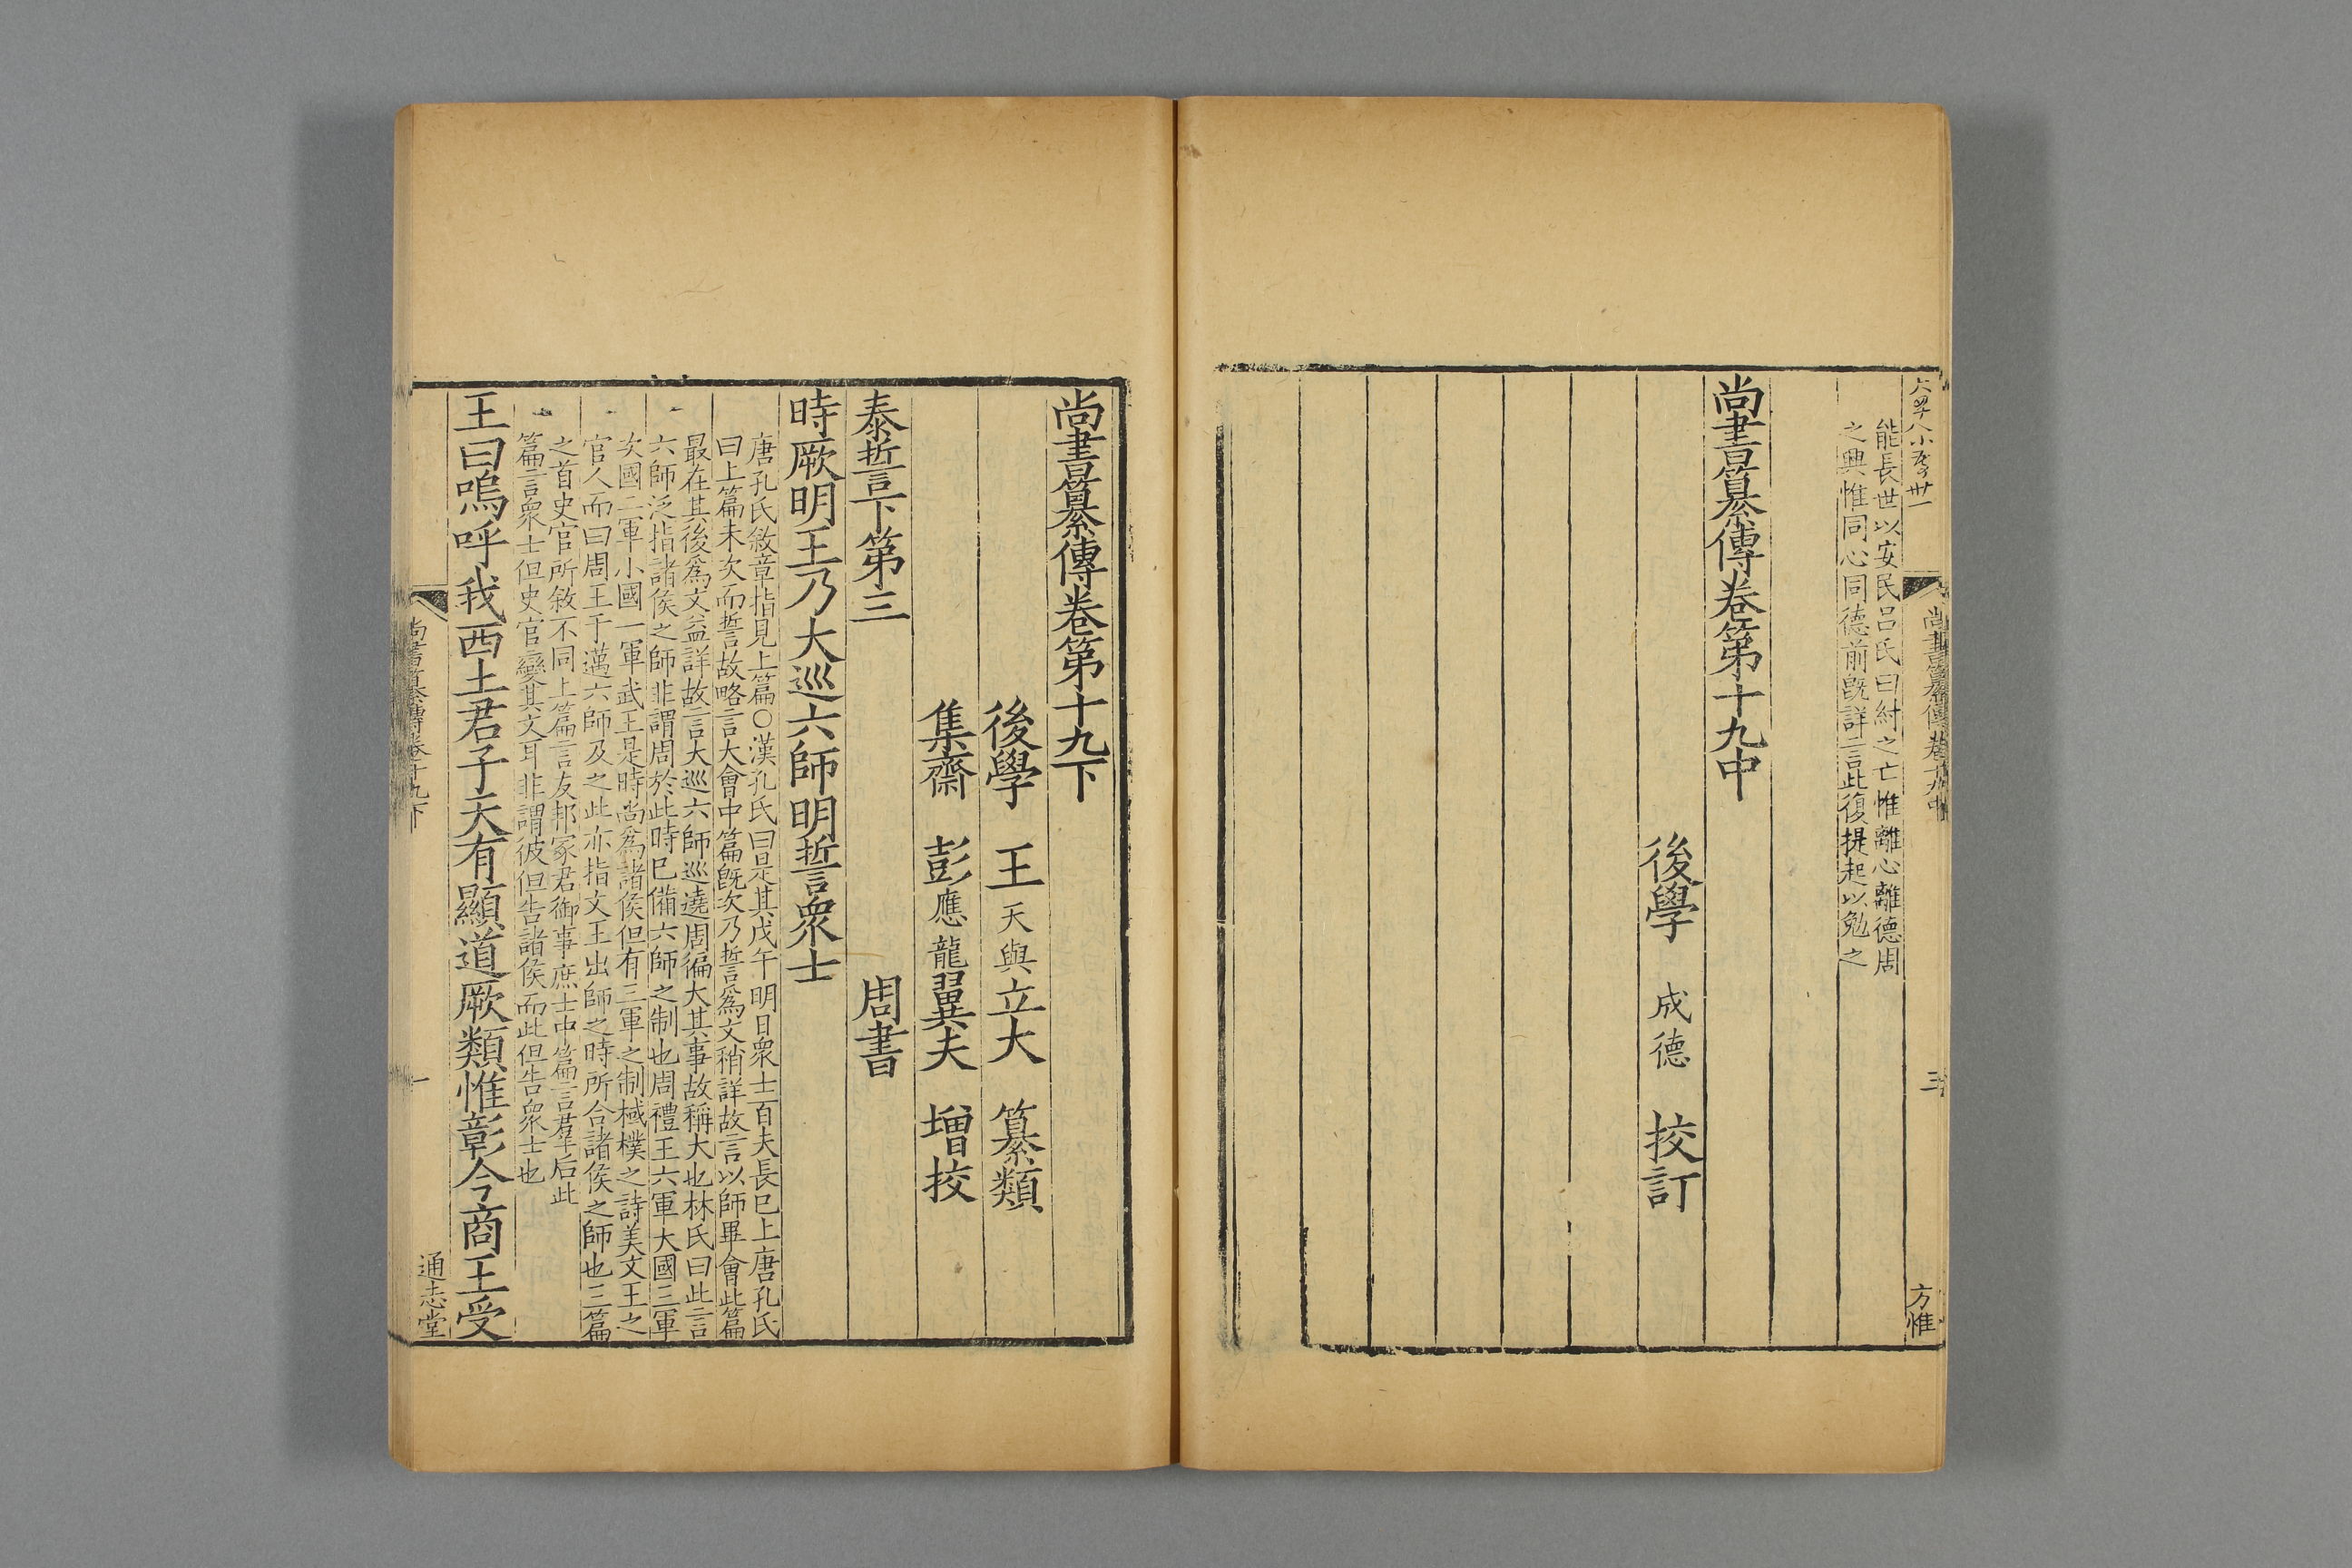 能長世以安民呂氏曰紂之亡惟離心離德周
之興惟同心同德前旣詳言此復提起以勉之
尚書纂傳卷第十九中
後學 成德 挍訂
三
方惟
尚書纂傳卷第十九下
後學 王天與立大 纂類
集齋 彭應龍翼夫 增挍
泰誓下第三 周書
時厥明王乃大巡六師明誓眾士
唐孔氏敘章指見上篇○漢孔氏曰是其戊午明日眾士百夫長巳上唐孔氏
曰上篇未次而誓故略言大會中篇旣次乃誓爲文稍詳故言以師畢會此篇
最在其後爲文益詳故言大巡六師巡遶周徧大其事故稱大也林氏曰此言
六師泛指諸侯之師非謂周於此時巳備六師之制也周禮王六軍大國三軍
次國二軍小國一軍武王是時尚爲諸侯但有三軍之制棫樸之詩美文王之
官人而曰周王于邁六師及之此亦指文王出師之時所合諸侯之師也三篇
之首史官所敘不同上篇言友邦冢君御事庶士中篇言羣后此
篇言眾士但史官變其文耳非謂彼但告諸侯而此但告眾士也
王曰嗚呼我西土君子天有顯道厥類惟彰今商王受
尚書纂傳卷十九下
一
通志堂